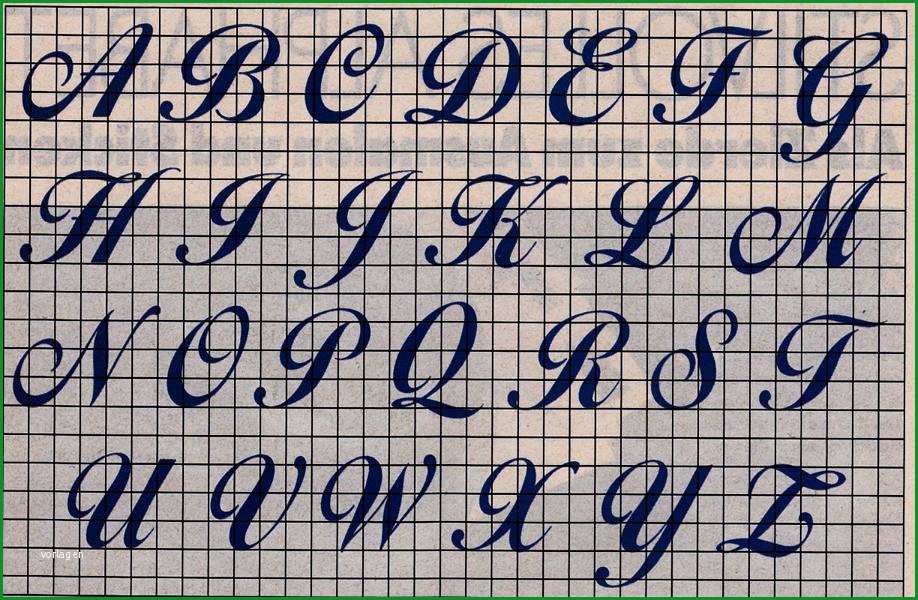 A B C D E F G
H I J K L M
N O P Q R S T
U V W X Y Z
vorlagen